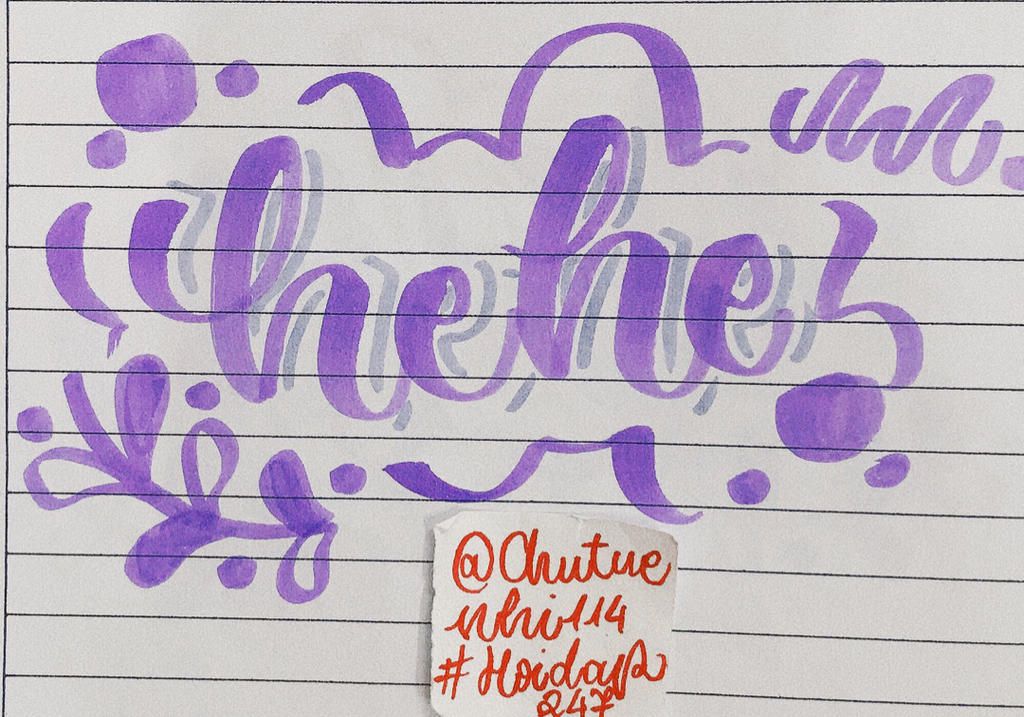 hehe
@Chutue
nhi114
#Hoidap
247